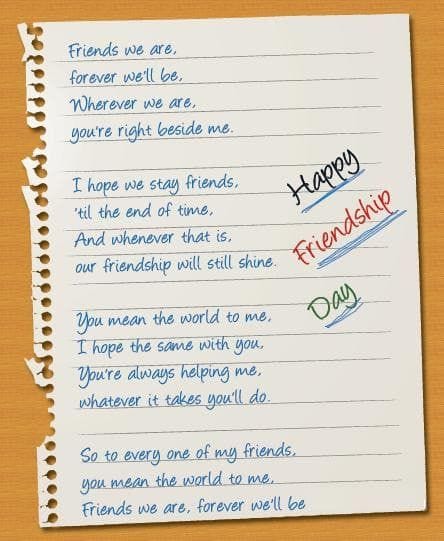 Friends we are,
forever we'll be,
Wherever we are,
you're right beside me.
I hope we stay friends,
'til the end of time,
And whenever that is,
our friendship will still shine.
Happy
Friendship
Day
You mean the world to me,
I hope the same with you,
You're always helping me,
whatever it takes you'll do.
So to every one of my friends,
you mean the world to me,
Friends we are, forever we'll be